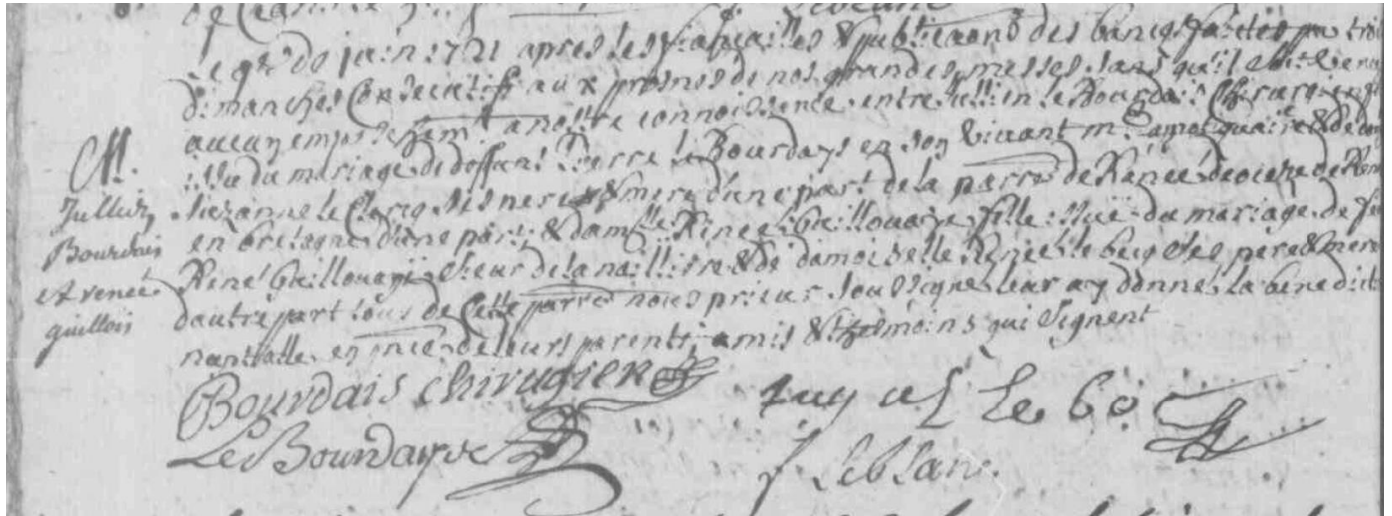 Le 9re de juin 1721 apres les fiansailles & publicaons des bancqs faictes par trois
dimanches Consecutifs aux prosnes de nos grandes messes sans qu'il soit venu
aucun empeschemt a nostre connoissence entre Jullien le Bourdais Chirurgien fils
issu du mariage de deffant Pierre le Bourdays en son vivant me apotiquaire & de dame
Suzanne le Clercq ses pere & mere d'une part de la parre de Renée diocize de Rennes
en bretagne d'une part, & damlle Renée Guillouaye fille issuë du mariage de
René Guillouaye sieur de la naillisre & de damoiselle Renée le becq ses pere & mere
dautre part tous de Cette parre nous prieur soussigné leur ay donné la benedict
nuptialle en pnce de leurs parents amis & temoins qui signent
M.
Jullien
Bourdais
et renée
guillois
Bourdais chirugien
Le Bourdays
f Leblanc